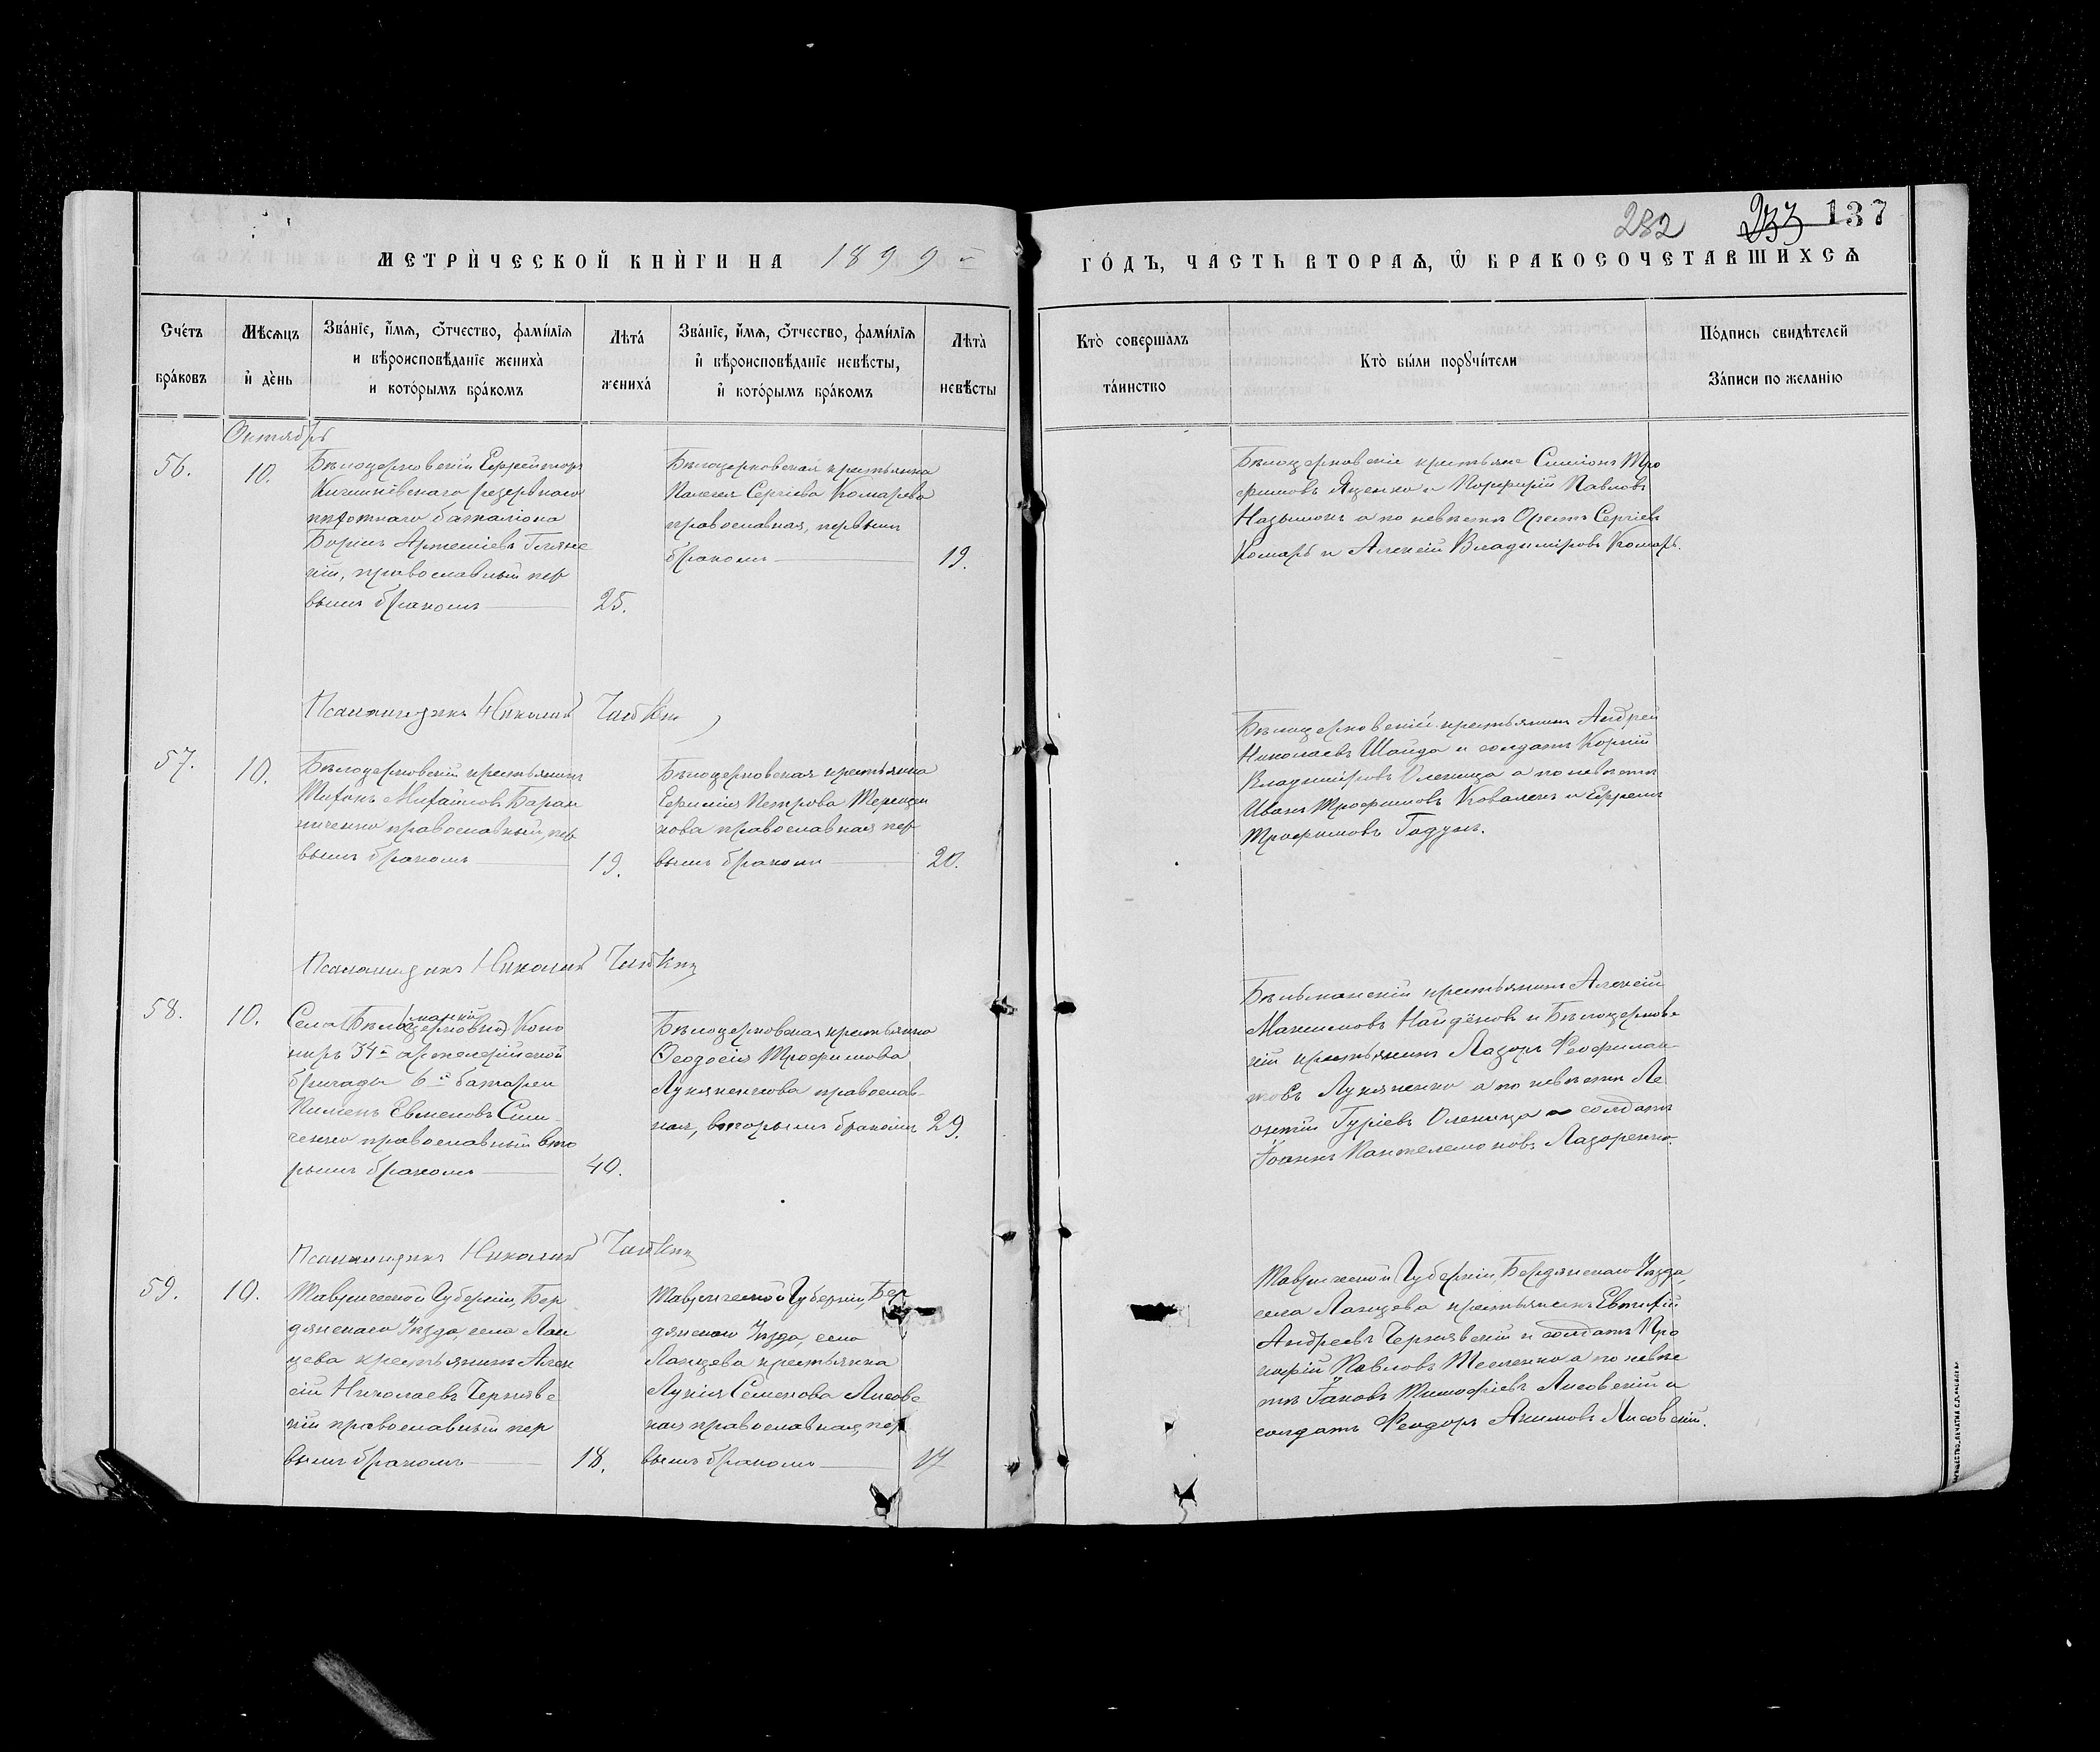 282 233 137
МЕТРИ́ЧЕСКОЙ КНИ́ГИ НА 1899й ГО́ДЪ, ЧАСТЬ ВТОРАѦ, Ѡ БРАКОСОЧЕТАВШИХСѦ
Сче́тъ бра́ковъ
Мѣсѧцъ и҆ де́нь
Зва́нїе, и҆́мѧ, ѻ҆́тчество, фами́лїѧ
и вѣроисповѣданїе жениха̀
и кото́рымъ бра́комъ
Лѣта̀ жениха̀
Зва́нїе, и҆́мѧ, ѻ҆́тчество, фами́лїѧ
и҆ вѣроисповѣданїе невѣсты,
и҆ кото́рымъ бра́комъ
Лѣта̀ невѣсты
Кто̀ совершалъ
та́инство
Кто̀ бы́ли порꙋчи́тели
По́дпись свидѣтелей
За́писи по жела́нїю
Октябрь
56.
10.
Бѣлоцерковскій Ефрейторъ
Кишинёвскаго резервнаго
пѣхотнаго баталіона
Борисъ Артеміевъ
православный пер
вымъ бракомъ
25.
Бѣлоцерковская крестьянка
Пелагея Сергіева Комарева
православная, первымъ
бракомъ
19.
Бѣлоцерковскіе крестьяне Симеонъ Тро
фимовъ Яценко и Порфирій Павловъ
а по невѣстѣ Орестъ Сергіевъ
Комарь и Алексій Владиміровъ Комарь.
Псаломщикъ Николай
57.
10.
Бѣлоцерковскій крестьянинъ
Тихонъ Михайловъ Баран
ниченко православный, пер
вымъ бракомъ
19.
Бѣлоцерковская крестьянка
Ефимія Петрова Терещен
кова православная пер
вымъ бракомъ
20.
Бѣлоцерковскій крестьянинъ Андрей
Николаевъ Шайда и солдатъ Корній
Владиміровъ Оленица а по невѣстѣ
Иванъ Трофимовъ Коваленко и Ефремъ
Трофимовъ Годунъ.
Псаломщикъ Николай
58.
10.
Села Бѣльманки Кано
ниръ 34й артиллерійской
бригады 6й батареи
Пименъ Евменовъ Сим
ченко православный вто
рымъ бракомъ
40.
Бѣлоцерковская крестьянка
Ѳеодосія Трофимова
Лукяненкова православ
ная, вторымъ бракомъ
29.
Бѣльманскій крестьянинъ Алексій
Максимовъ Найдёновъ и Бѣлоцерковс
кій крестьянинъ Лазарь Феофилак
товъ Лукяненко а по невѣстѣ Ле
онтій Гуріевъ Оленица и солдатъ
Іоаннъ Пантелемоновъ Лазоренко.
Псаломщикъ Николай
59.
10.
Таврической Губерніи, Бер
дянскаго Уѣзда, села Лан
цева крестьянинъ Алек
сій Николаевъ Чернявс
кій православный пер
вымъ бракомъ
18.
Таврической Губерніи, Бер
дянскаго Уѣзда, села
Ланцева крестьянка
Лукія Семенова Лисовс
кая православная, пер
вымъ бракомъ
17
Таврической Губерніи, Бердянскаго Уѣзда,
села Ланцева крестьянинъ Евтихій
Андреевъ Чернявскій и солдатъ Про
кофій Павловъ Тесленко а по невѣс
тѣ Іаковъ Тимофіевъ Лисовскій и
солдатъ Феодоръ Якимовъ Лисовскій.